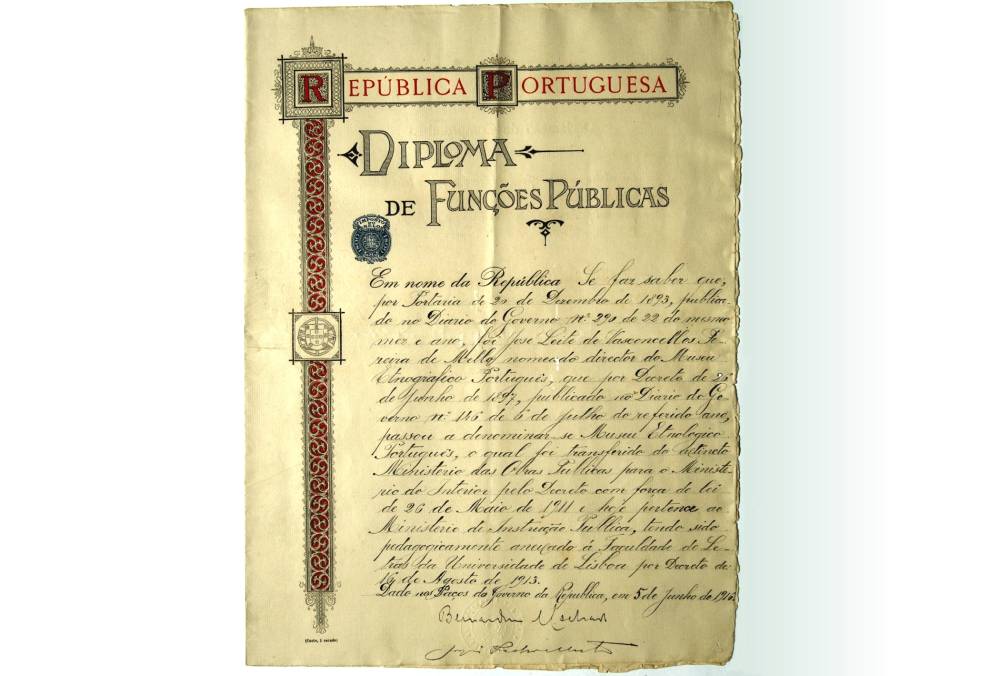 REPÚBLICA PORTUGUESA
DIPLOMA
DE FUNÇÕES PÚBLICAS
Em nome da República Se faz saber que,
por Portaria de 20 de Dezembro de 1893, publica-
do no Diario do Governo nº 290 de 22 do mesmo
mez e ano, foi José Leite de Vasconcellos Pe-
reira de Mello nomeado director do Museu
Etnografico Português, que por Decreto de 26
de Junho de 1897, publicado no Diario do Go-
verno nº 146 de 6 de Julho do referido ano,
passou a denominar se Museu Etnologico
Português, o qual foi transferido do extincto
Ministerio das Obras Publicas para o Ministe-
rio do Interior pelo Decreto com força de lei
de 26 de Maio de 1911 e hoje pertence ao
Ministerio de Instrução Publica, tendo sido
pedagogicamente anexado á Faculdade de Le-
tras da Universidade de Lisboa por Decreto de
de Agosto de 1913.
Dado nos Paços do Governo da Republica, em 5 de Junho de 1916
Bernardino Machado
(Custo, 1 escudo)